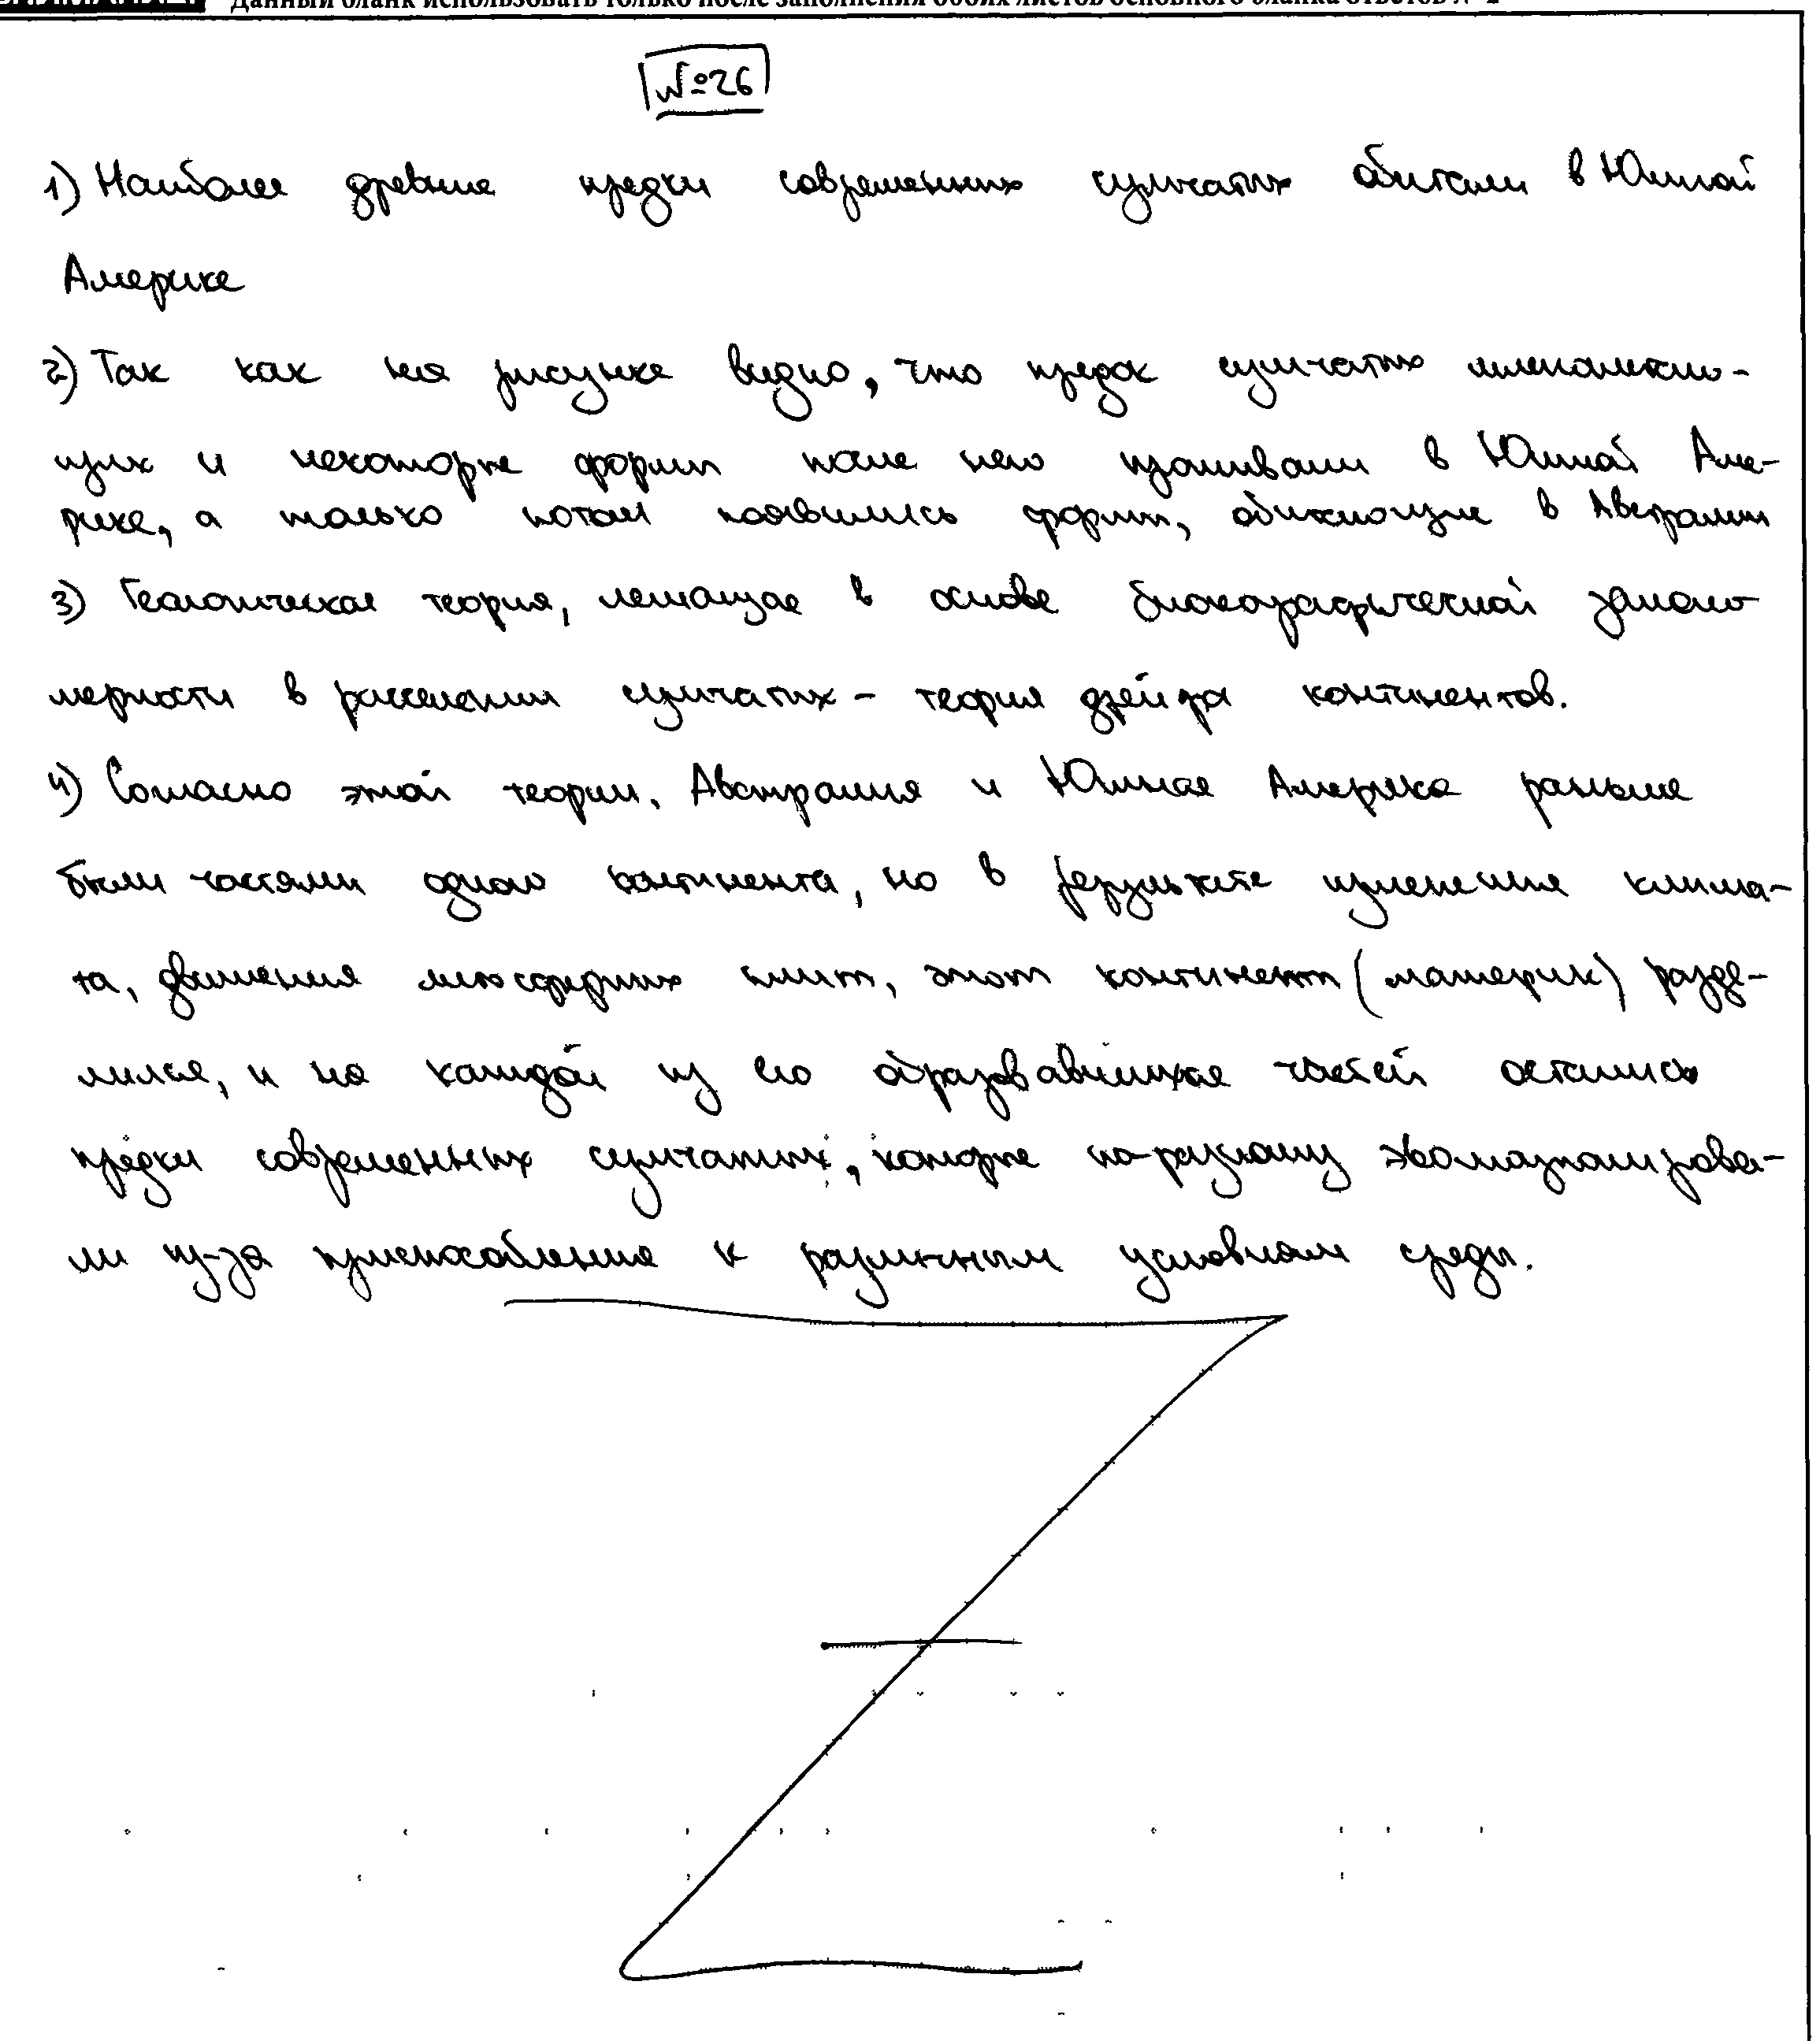 Данный бланк использовать только после заполнения обоих листов основного бланка ответов № 2
№26
1) Наиболее древние предки современных сумчатых обитали в Южной
Америке
2) Так как на рисунке видно, что предок сумчатых млекопитаю-
щих и некоторые формы после него проживали в Южной Аме-
рике, а только потом появились формы, обитающие в Австралии
3) Геологическая теория, лежащая в основе биогеографической законо
мерности в расселении сумчатых - теория дрейфа континентов.
4) Согласно этой теории, Австралия и Южная Америка раньше
были частями одного континента, но в результате изменения клима-
та, движения литосферных плит, этот континент (материк) разде-
лился, и на каждой из его образовавшихся частей остались
предки современных сумчатых, которые по-разному эволюционирова-
ли из-за приспособления к различным условиям среды.